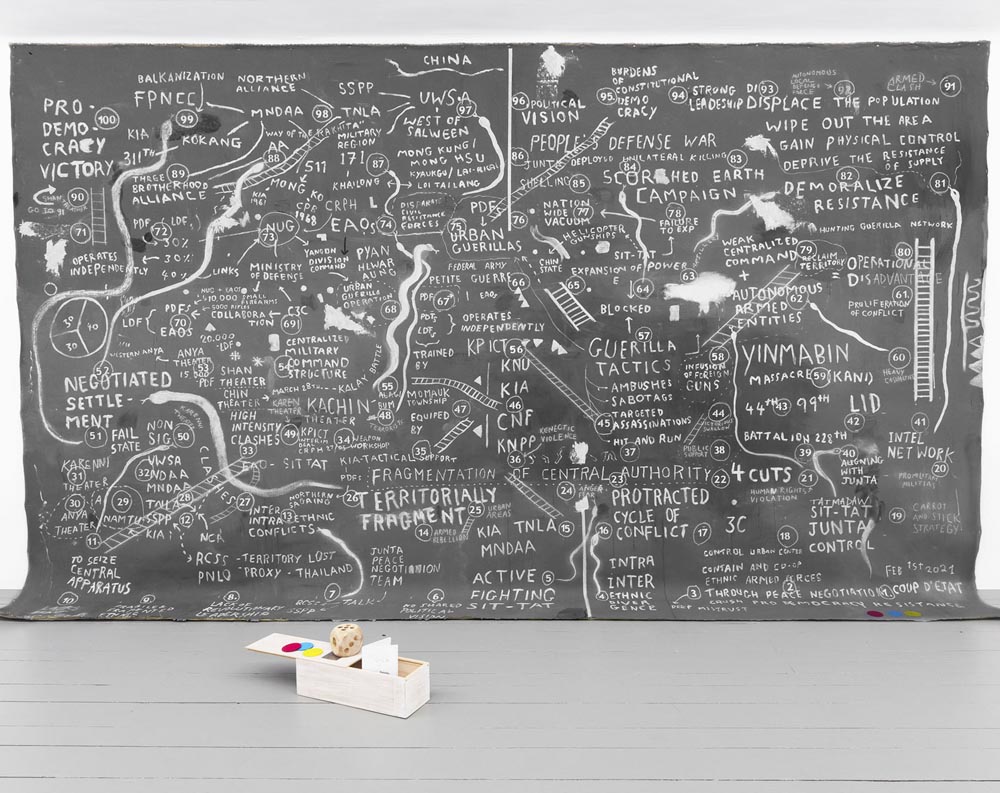 CHINA
BALKANIZATION
NORTHERN
ALLIANCE
SSPP
FPNCC
UWSA
97
PRO-
DEMO-
CRACY
VICTORY
100
99
MNDAA
98
TNLA
WEST OF
SALWEEN
KIA
KOKANG
AA
MILITARY
REGION
171
MONG KUNG/
MONG HSU
311TH
88
511
87
KYAUNGU/LAI-KHAI
LOI TAILENG
THREE 89
BROTHERHOOD
ALLIANCE
KIA
1961
MONG KO
CPB
1968
KHALONG
CRPH
90
GO TO 91
71
PDF
72
LDF
30%
30%
40%
NUG
73
EAOS
74
CIVIL
RESISTANCE
FORCES
PDF
75
URBAN
GUERILLAS
OPERATES
INDEPENDENTLY
LINKS
YANGON
DIVISION
COMMAND
PYAN
HLWAR
AUNG
MINISTRY
OF DEFENCE
URBAN
GUERILLA
OPERATION
68
FEDERAL ARMY
PETITE GUERRE
66
PDF
67
EAOS
PDF
LDF
OPERATES
INDEPENDENTLY
NUG + EAOS
$10,000 SMALL
FIREARMS
COLLABORA
TION
C3C
69
PDF
LDF
70
EAOS
30
40
30
20,000
LDF
CENTRALIZED
MILITARY
COMMAND
STRUCTURE
TRAINED
BY
KPICT
56
KNU
KIA
46
CNF
KNPP
52
WESTERN ANYA
ANYA
THEATER
53
SHAN
THEATER
54
NEGOTIATED
SETTLE-
MENT
CHIN
THEATER
MARCH 28
KALAY BATTLE
55
KAREN
THEATER
KACHIN
THEATER
48
MOMAUK
TOWNSHIP
47
EQUIPED
BY
HIGH
INTENSITY
CLASHES
49
KPICT
34
WEAPON
WORKSHOP
35
51
FAIL
STATE
NON
SIG
50
CLASHES
33
EAO - SIT TAT
KIA-TACTICAL SUPPORT
36
PDF
FRAGMENTATION OF CENTRAL AUTHORITY
22
KARENNI
31
THEATER
UWSA
32
NDAA
MNDAA
TNLA
SSPP
KIA
30
ANYA
THEATER
29
NAMTU
28
27
26
TERRITORIALLY
FRAGMENT
25
URBAN
AREAS
24
NORTHERN
SAGAING
INTER
INTRA
ETHNIC
CONFLICTS
13
14
ARMED
REBELLION
KIA
MNDAA
TNLA
15
11
12
NCA
TO SEIZE
CENTRAL
APPARATUS
RCSS - TERRITORY LOST
PNLO - PROXY - THAILAND
JUNTA
PEACE
NEGOTIATION
TEAM
ACTIVE
5
FIGHTING
SIT-TAT
10
9
8
7
6
NO SHARED
POLITICAL
VISION
96
POLITICAL
VISION
BURDENS
OF
CONSTITUTIONAL
95
DEMO
CRACY
94
STRONG
LEADERSHIP
93
DISPLACE THE POPULATION
AUTONOMOUS
LOCAL
DEFENSE
FORCE
92
ARMED
CLASH
91
WIPE OUT THE AREA
GAIN PHYSICAL CONTROL
DEPRIVE THE RESISTANCE
OF SUPPLY
PEOPLE'S DEFENSE WAR
86
JUNTA DEPLOYED UNILATERAL KILLING
83
84
SHELLING
85
SCORCHED EARTH
CAMPAIGN
82
DEMORALIZE
RESISTANCE
81
76
NATION
WIDE
77
VACUUM
78
FAILURE
TO EXP
HELICOPTER
GUNSHIPS
CHIN
STATE
SIT-TAT
EXPANSION OF POWER
63
65
64
BLOCKED
WEAK
CENTRALIZED
COMMAND
+
AUTONOMOUS
ARMED
62
ENTITIES
79
RECLAIM
TERRITORY
HUNTING GUERILLA NETWORK
80
OPERATIONAL
DISADVANTAGE
61
PROLIFERATION
OF CONFLICT
57
GUERILLA
TACTICS
58
INFUSION
OF FOREIGN
GUNS
AMBUSHES
SABOTAGS
TARGETED
ASSASSINATIONS
45
HIT AND RUN
44
YINMABIN
MASSACRE
59
(KANI)
60
HEAVY
44TH
43
99TH
LID
42
41
BATTALION 228TH
INTEL
NETWORK
KENECTIC
VIOLENCE
37
PUBLIC
SUPPORT
38
39
40
ALIGNING
WITH
JUNTA
20
4 CUTS
21
HUMAN RIGHTS
VIOLATION
23
PROTRACTED
CYCLE OF
CONFLICT
16
17
3C
18
TATMADAW
SIT-TAT
JUNTA
CONTROL
19
CARROT
AND STICK
STRATEGY
INTRA
INTER
4
ETHNIC
DIVER
GENCE
CONTROL URBAN CENTER
CONTAIN AND CO-OP
ETHNIC ARMED FORCES
3
THROUGH PEACE NEGOTIATION
2
FEB 1ST 2021
1
COUP D'ETAT
DEEP MISTRUST
PRO DEMOCRACY RESISTANCE